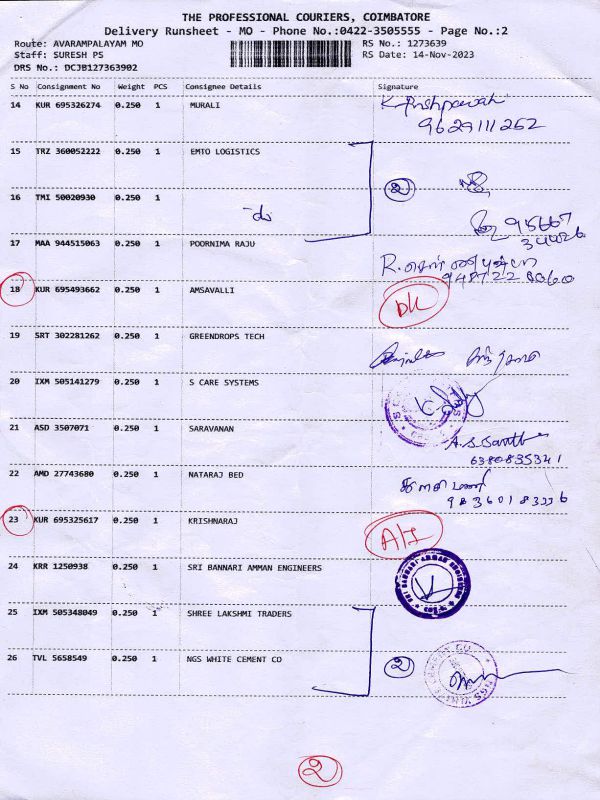 THE PROFESSIONAL COURIERS, COIMBATORE
Delivery Runsheet - MO - Phone No.:0422-3505555 - Page No.:2
Route: AVARAMPALAYAM MO
RS No.: 1273639
Staff: SURESH PS
RS Date: 14-Nov-2023
DRS No.: DCJB127363902
S No Consignment No Weight PCS Consignee Details Signature
14 KUR 695326274 0.250 1 MURALI
9629111252
15 TRZ 360052222 0.250 1 EMTO LOGISTICS
2
16 TMI 50020930 0.250 1
-do
95667
34426
17 MAA 944515063 0.250 1 POORNIMA RAJU
R.
18 KUR 695493662 0.250 1 AMSAVALLI
DK
19 SRT 302281262 0.250 1 GREENDROPS TECH
20 IXM 505141279 0.250 1 S CARE SYSTEMS
21 ASD 3507071 0.250 1 SARAVANAN
6380835341
22 AMD 27743680 0.250 1 NATARAJ BED
23 KUR 695325617 0.250 1 KRISHNARAJ
A/I
24 KRR 1250938 0.250 1 SRI BANNARI AMMAN ENGINEERS
25 IXM 505348049 0.250 1 SHREE LAKSHMI TRADERS
2
26 TVL 5658549 0.250 1 NGS WHITE CEMENT CO
2